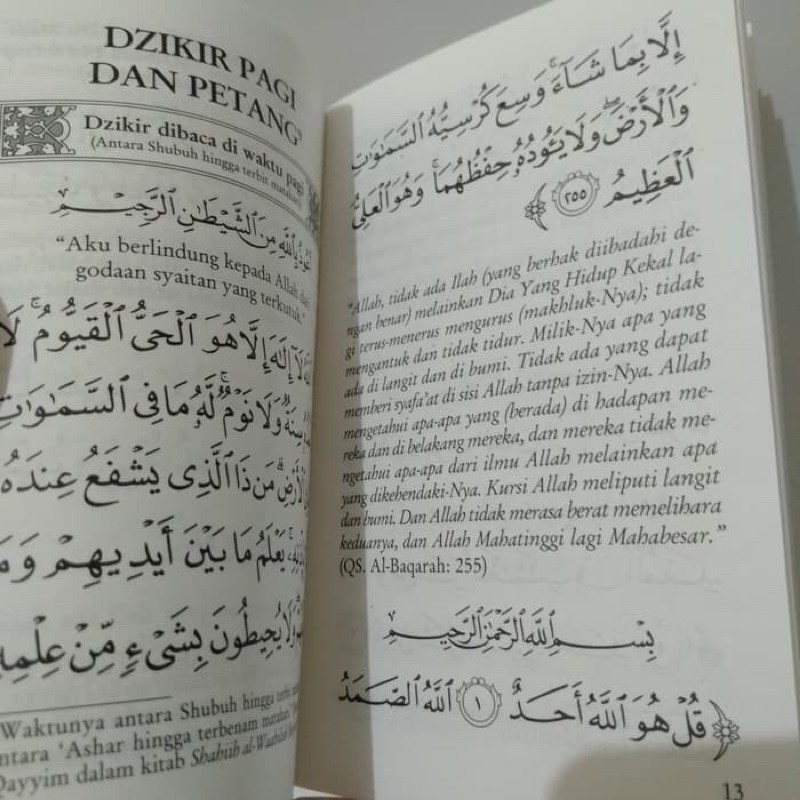 DZIKIR PAGI
DAN PETANG
Dzikir dibaca di waktu pagi
(Antara Shubuh hingga terbit matahari)
أَعُوذُ بِاللَّهِ مِنَ الشَّيْطَانِ الرَّجِيمِ
“Aku berlindung kepada Allah dari
godaan syaitan yang terkutuk.”
لَآ إِلَٰهَ إِلَّا هُوَ ٱلْحَىُّ ٱلْقَيُّومُ ۚ لَا
سِنَةٌ وَلَا نَوْمٌ ۚ لَّهُۥ مَا فِى ٱلسَّمَٰوَٰتِ
ٱلْأَرْضِ ۗ مَن ذَا ٱلَّذِى يَشْفَعُ عِندَهُۥ
يَعْلَمُ مَا بَيْنَ أَيْدِيهِمْ وَمَا
وَلَا يُحِيطُونَ بِشَىْءٍ مِّنْ عِلْمِهِ
Waktunya antara Shubuh hingga terbit
antara ‘Ashar hingga terbenam matahari
Qayyim dalam kitab Shahiih al-Waabilish
إِلَّا بِمَا شَآءَ ۚ وَسِعَ كُرْسِيُّهُ ٱلسَّمَٰوَٰتِ
وَٱلْأَرْضَ ۖ وَلَا يَـُٔودُهُۥ حِفْظُهُمَا ۚ وَهُوَ ٱلْعَلِىُّ
ٱلْعَظِيمُ ٢٥٥
“Allah, tidak ada Ilah (yang berhak diibadahi de-
ngan benar) melainkan Dia Yang Hidup Kekal la-
gi terus-menerus mengurus (makhluk-Nya); tidak
mengantuk dan tidak tidur. Milik-Nya apa yang
ada di langit dan di bumi. Tidak ada yang dapat
memberi syafa’at di sisi Allah tanpa izin-Nya. Allah
mengetahui apa-apa yang (berada) di hadapan me-
reka dan di belakang mereka, dan mereka tidak me-
ngetahui apa-apa dari ilmu Allah melainkan apa
yang dikehendaki-Nya. Kursi Allah meliputi langit
dan bumi. Dan Allah tidak merasa berat memelihara
keduanya, dan Allah Mahatinggi lagi Mahabesar.”
(QS. Al-Baqarah: 255)
بِسْمِ ٱللَّهِ ٱلرَّحْمَٰنِ ٱلرَّحِيمِ
قُلْ هُوَ ٱللَّهُ أَحَدٌ ١ ٱللَّهُ ٱلصَّمَدُ
13